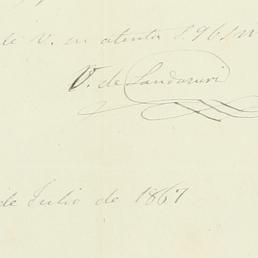 de V. su atento S.
V. de Landazuri
de Julio de 1867